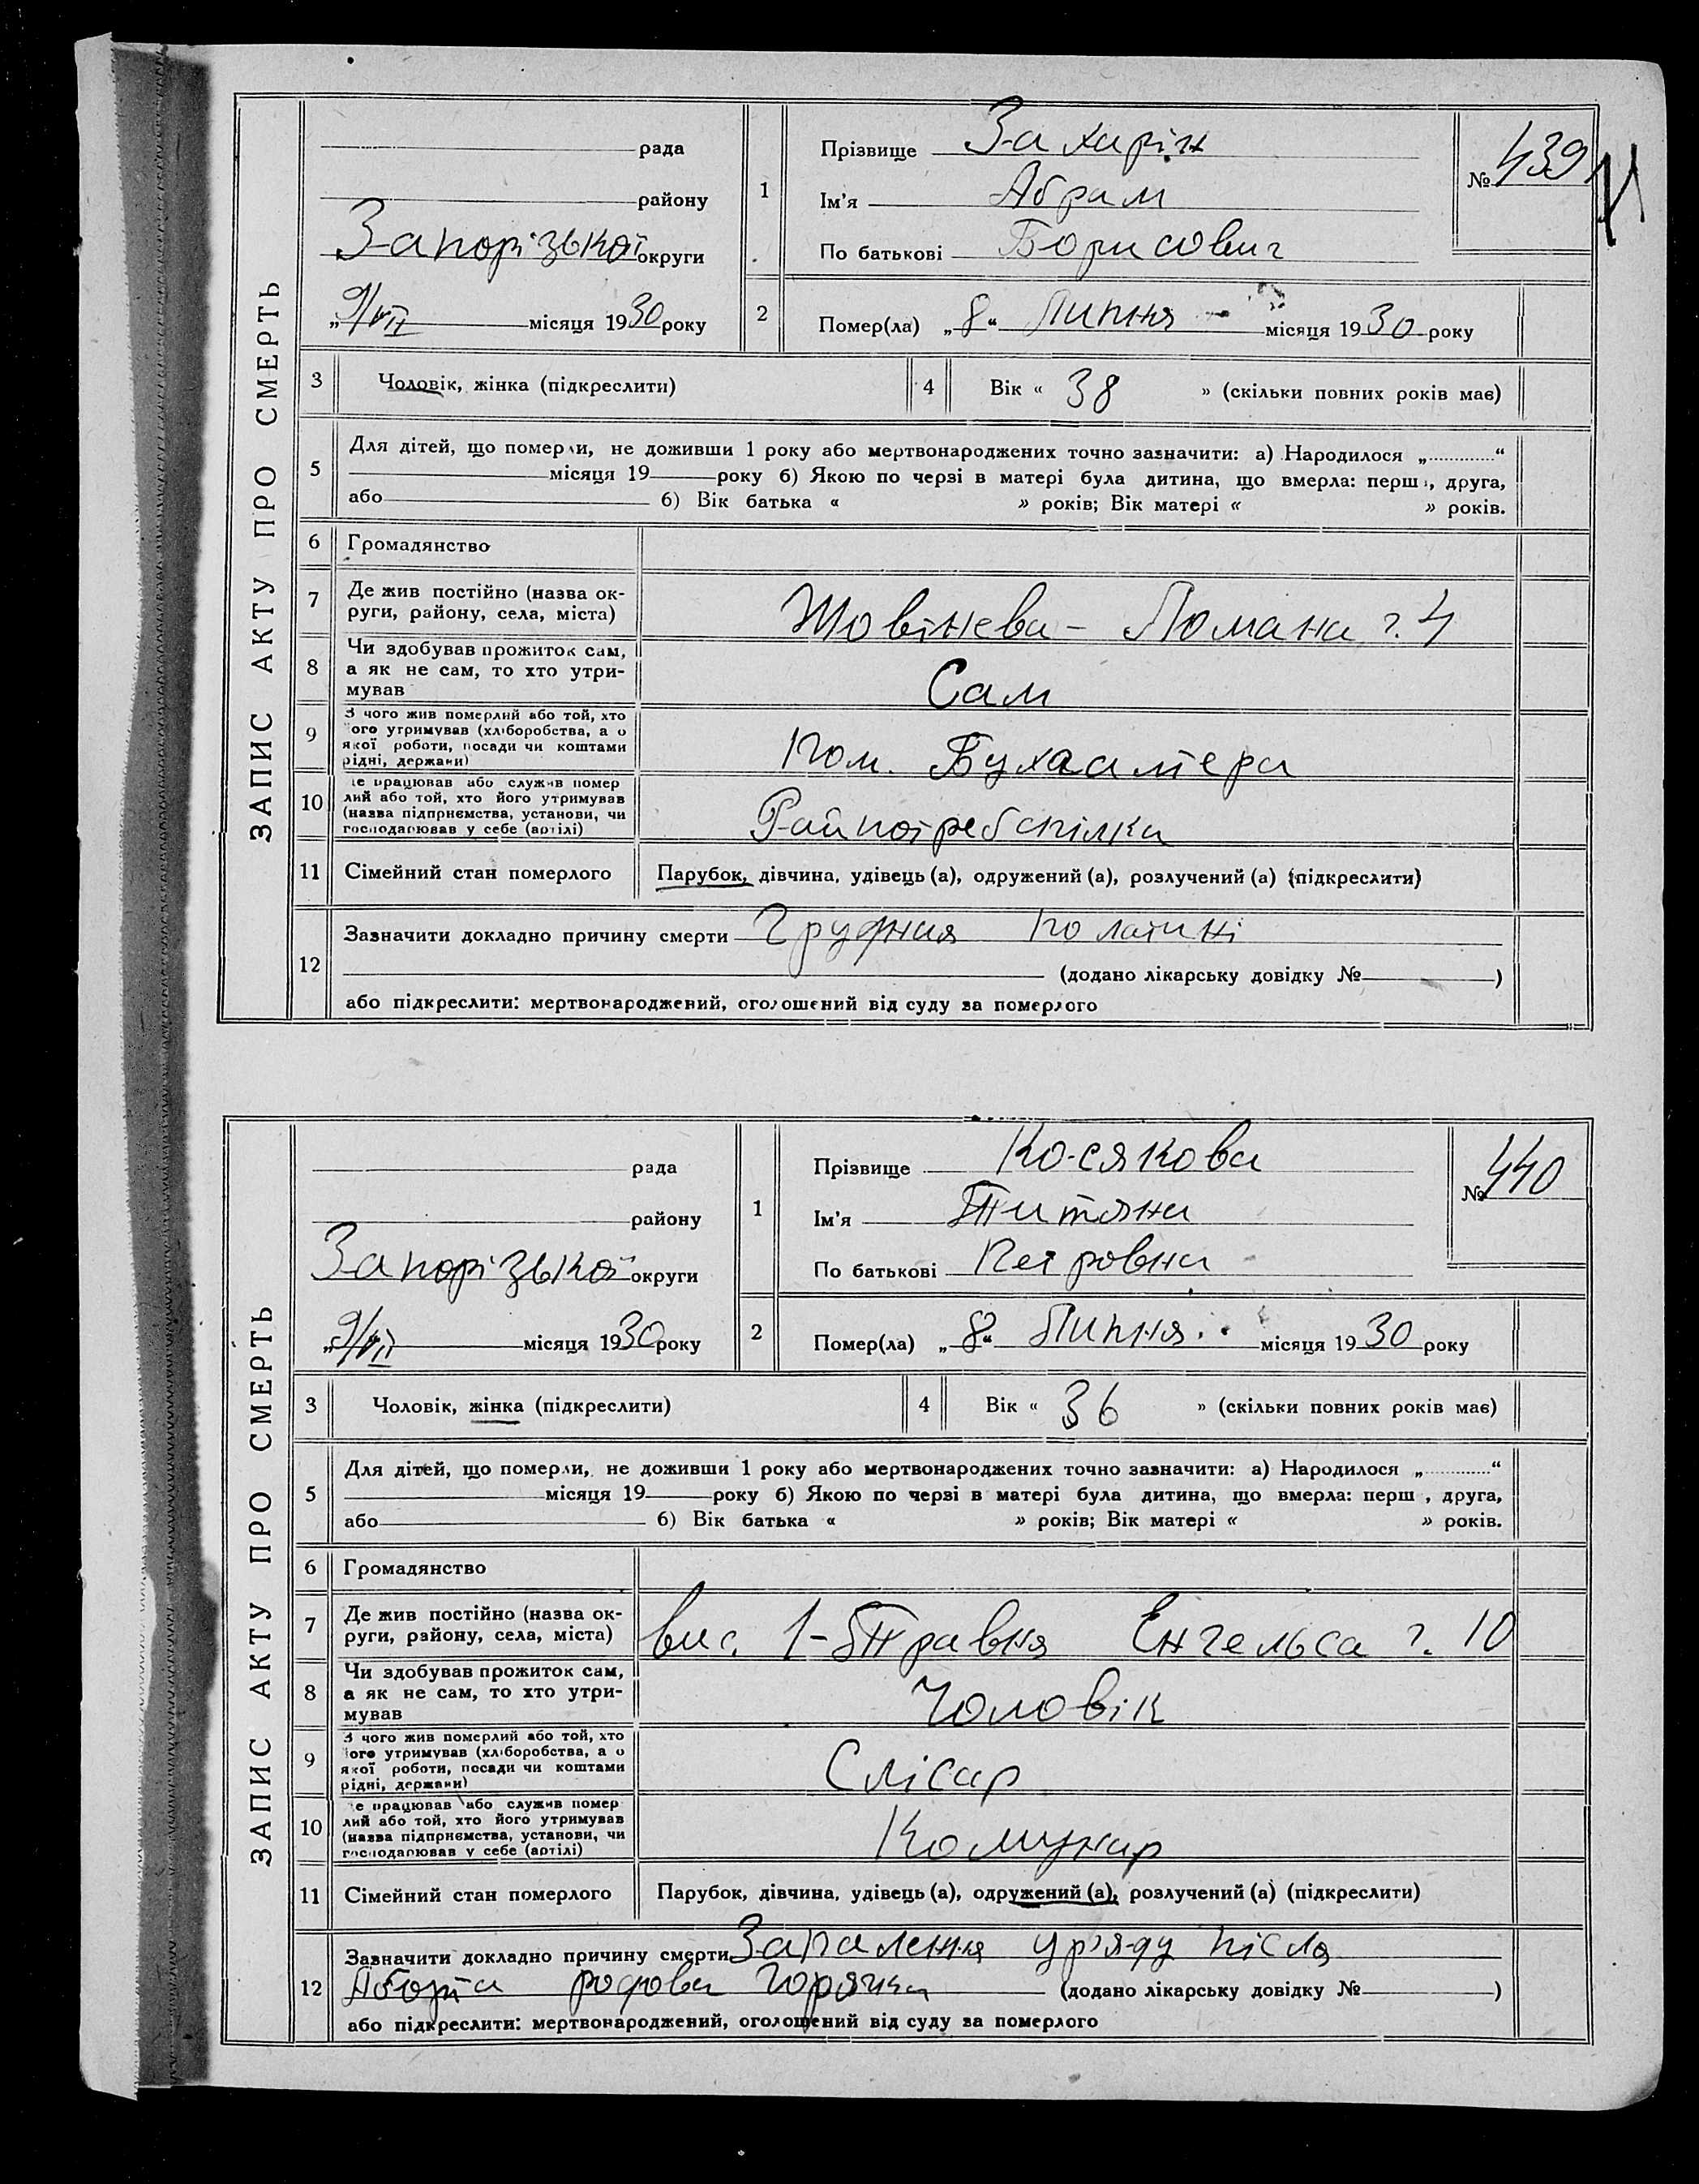 ЗАПИС АКТУ ПРО СМЕРТЬ
рада
району
Запорізької округи
„9/VII місяця 1930 року
1
Прізвище Захарін
Ім'я Абрам
По батькові Борисович
№ 439
2
Помер(ла) „8“ Липня місяця 1930 року
3
Чоловік, жінка (підкреслити)
4
Вік « 38 » (скільки повних років має)
5
Для дітей, що померли, не доживши 1 року або мертвонароджених точно зазначити: а) Народилося „ “
місяця 19 року б) Якою по черзі в матері була дитина, що вмерла: перш , друга,
або б) Вік батька « » років; Вік матері « » років.
6
Громадянство
7
Де жив постійно (назва ок-
руги, району, села, міста)
ч. 4
8
Чи здобував прожиток сам,
а як не сам, то хто утри-
мував
Сам
9
З чого жив померлий або той, хто
ого утримував (хліборобства, а о
якої роботи, посади чи коштами
рідні, держави)
Пом. Бухаалтера
10
е працював або служив помер
лий або той, хто його утримував
(назва підприємства, установи, чи
господарював у себе (артілі)
Райпотребспілка
11
Сімейний стан померлого
Парубок, дівчина, удівець (а), одружений (а), розлучений (а) (підкреслити)
12
Зазначити докладно причину смерти Грудная
(додано лікарську довідку № )
або підкреслити: мертвонароджений, оголошений від суду за померлого
ЗАПИС АКТУ ПРО СМЕРТЬ
рада
району
Запорізької округи
„9/VII місяця 1930 року
1
Прізвище Косякова
Ім'я Титяна
По батькові Петровна
№ 440
2
Помер(ла) „8“ Липня місяця 1930 року
3
Чоловік, жінка (підкреслити)
4
Вік « 36 » (скільки повних років має)
5
Для дітей, що померли, не доживши 1 року або мертвонароджених точно зазначити: а) Народилося „ “
місяця 19 року б) Якою по черзі в матері була дитина, що вмерла: перш , друга,
або б) Вік батька « » років; Вік матері « » років.
6
Громадянство
7
Де жив постійно (назва ок-
руги, району, села, міста)
вис. 1-Травня Енгельса ч. 10
8
Чи здобував прожиток сам,
а як не сам, то хто утри-
мував
Чоловік
9
З чого жив померлий або той, хто
ого утримував (хліборобства, а о
якої роботи, посади чи коштами
рідні, держави)
Слісар
10
е працював або служив помер
лий або той, хто його утримував
(назва підприємства, установи, чи
господарював у себе (артілі)
Комунар
11
Сімейний стан померлого
Парубок, дівчина, удівець (а), одружений (а), розлучений (а) (підкреслити)
12
Зазначити докладно причину смерти Запалення після
Аборта родова горячка (додано лікарську довідку № )
або підкреслити: мертвонароджений, оголошений від суду за померлого